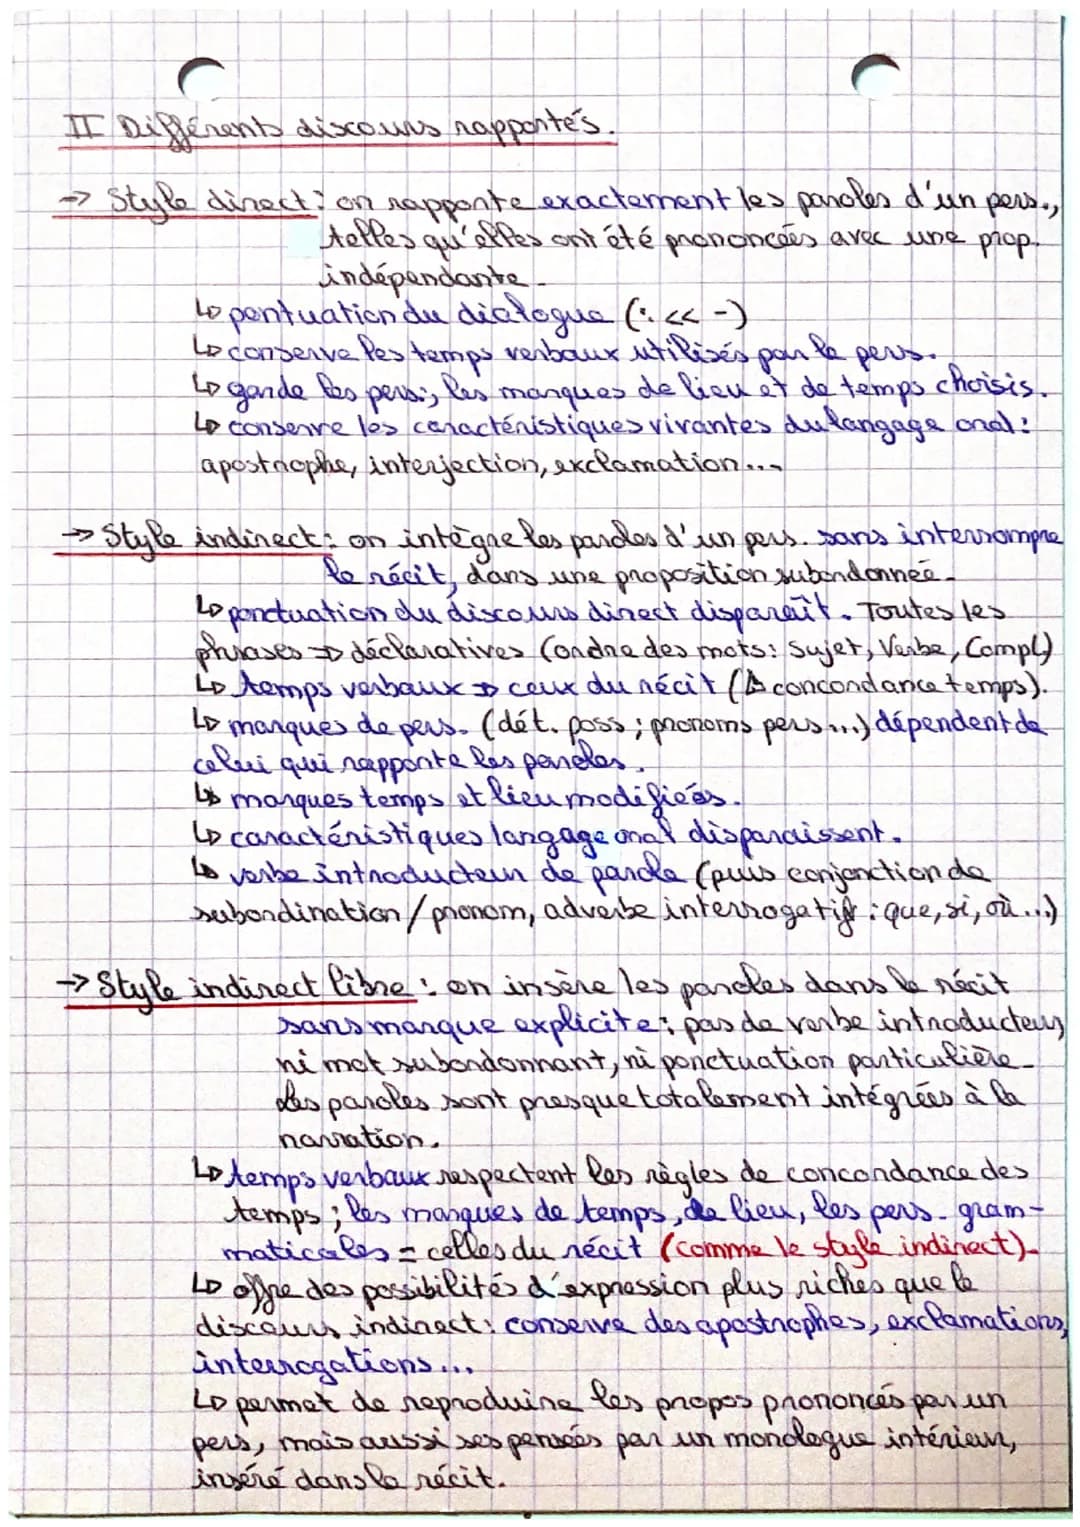 II Différents discours rapportés.
-> Style direct : on rapporte exactement les paroles d'un pers.,
telles qu'elles ont été prononcées avec une prop.
indépendante.
↳ pontuation du dialogue (: << -)
↳ conserve les temps verbaux utilisés par le pers.
↳ garde les pers., les marques de lieu et de temps choisis.
↳ conserve les caractéristiques vivantes du langage oral :
apostrophe, interjection, exclamation...
-> Style indirect : on intègre les paroles d'un pers. sans interrompre
le récit, dans une proposition subordonnée.
↳ ponctuation du discours direct disparaît. Toutes les
phrases => déclaratives (ordre des mots : Sujet, Verbe, Compl.)
↳ temps verbaux => ceux du récit (⚠ concordance temps).
↳ marques de pers. (dét. poss ; pronoms pers...) dépendent de
celui qui rapporte les paroles.
↳ marques temps et lieu modifiées.
↳ caractéristiques langage oral disparaissent.
↳ verbe introducteur de parole (puis conjonction de
subordination / pronom, adverbe interrogatif : que, si, où...)
-> Style indirect libre : on insère les paroles dans le récit
sans marque explicite : pas de verbe introducteur,
ni mot subordonnant, ni ponctuation particulière.
Les paroles sont presque totalement intégrées à la
narration.
↳ temps verbaux respectent les règles de concordance des
temps ; les marques de temps, de lieu, les pers. gram-
maticales = celles du récit (comme le style indirect).
↳ offre des possibilités d'expression plus riches que le
discours indirect : conserve des apostrophes, exclamations,
interrogations...
↳ permet de reproduire les propos prononcés par un
pers, mais aussi ses pensées par un monologue intérieur,
inséré dans le récit.